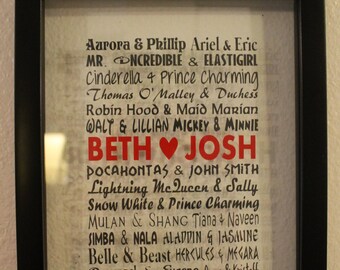 Aurora & Phillip Ariel & Eric
MR. INCREDIBLE & ELASTIGIRL
Cinderella & Prince Charming
Thomas O'Malley & Duchess
Robin Hood & Maid Marian
WALT & LILLIAN MICKEY & MINNIE
BETH ♥ JOSH
POCAHONTAS & JOHN SMITH
Lightning McQueen & Sally
Snow White & Prince Charming
MULAN & SHANG Tiana & Naveen
SIMBA & NALA ALADDIN & JASMINE
Belle & Beast HERCULES & MEGARA